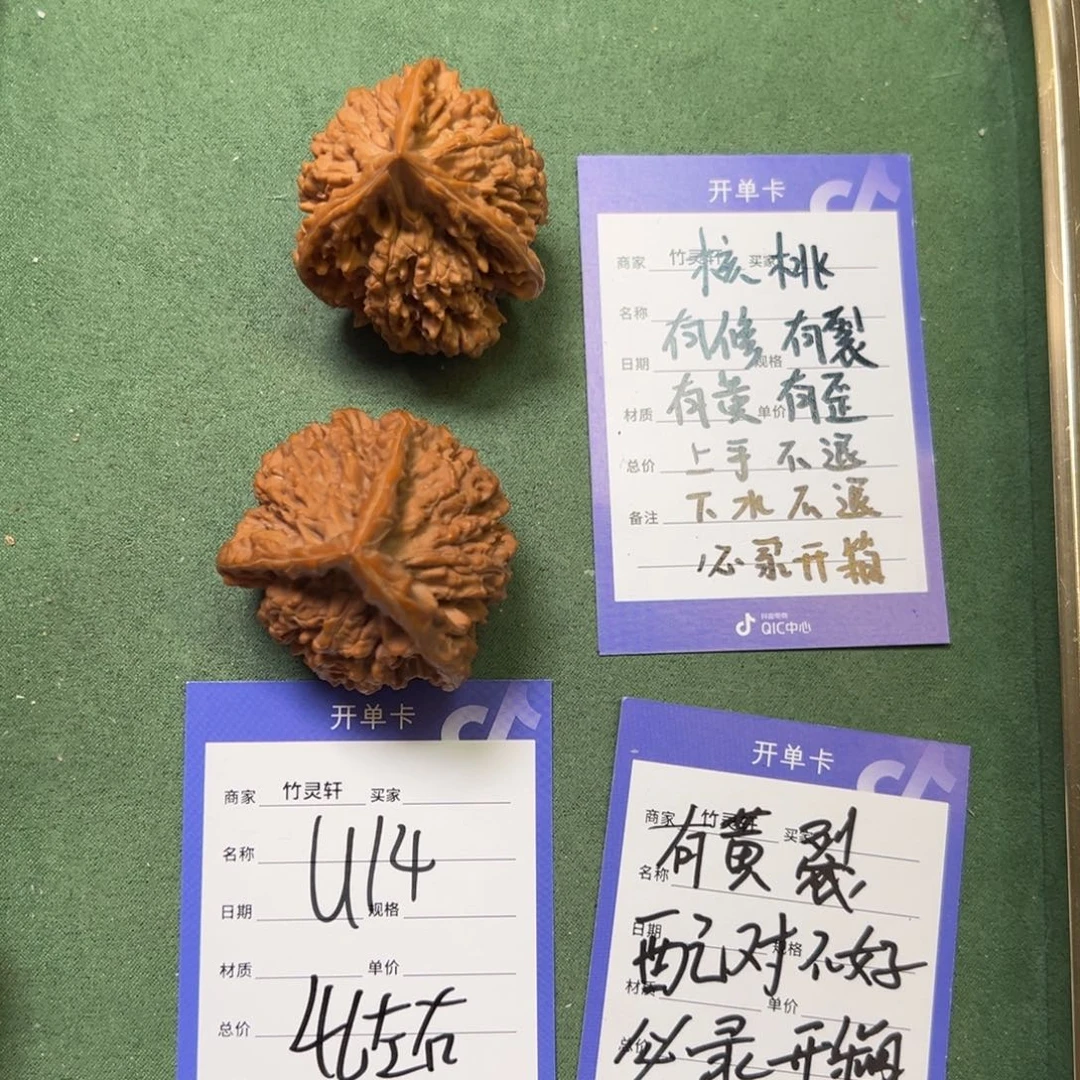 开单卡
商家 竹灵轩 买家
核桃
名称
有修 有裂
日期 规格
有黄 有歪
材质 单价
上手 不退
总价
下水 不退
备注
必录开箱
抖音电商
QIC中心
开单卡
商家 竹灵轩 买家
U14
名称
日期 规格
材质 单价
总价
左右
开单卡
商家 竹灵轩 买家
有黄 裂
名称
日期 规格
配对不好
材质 单价
总价
必录开箱